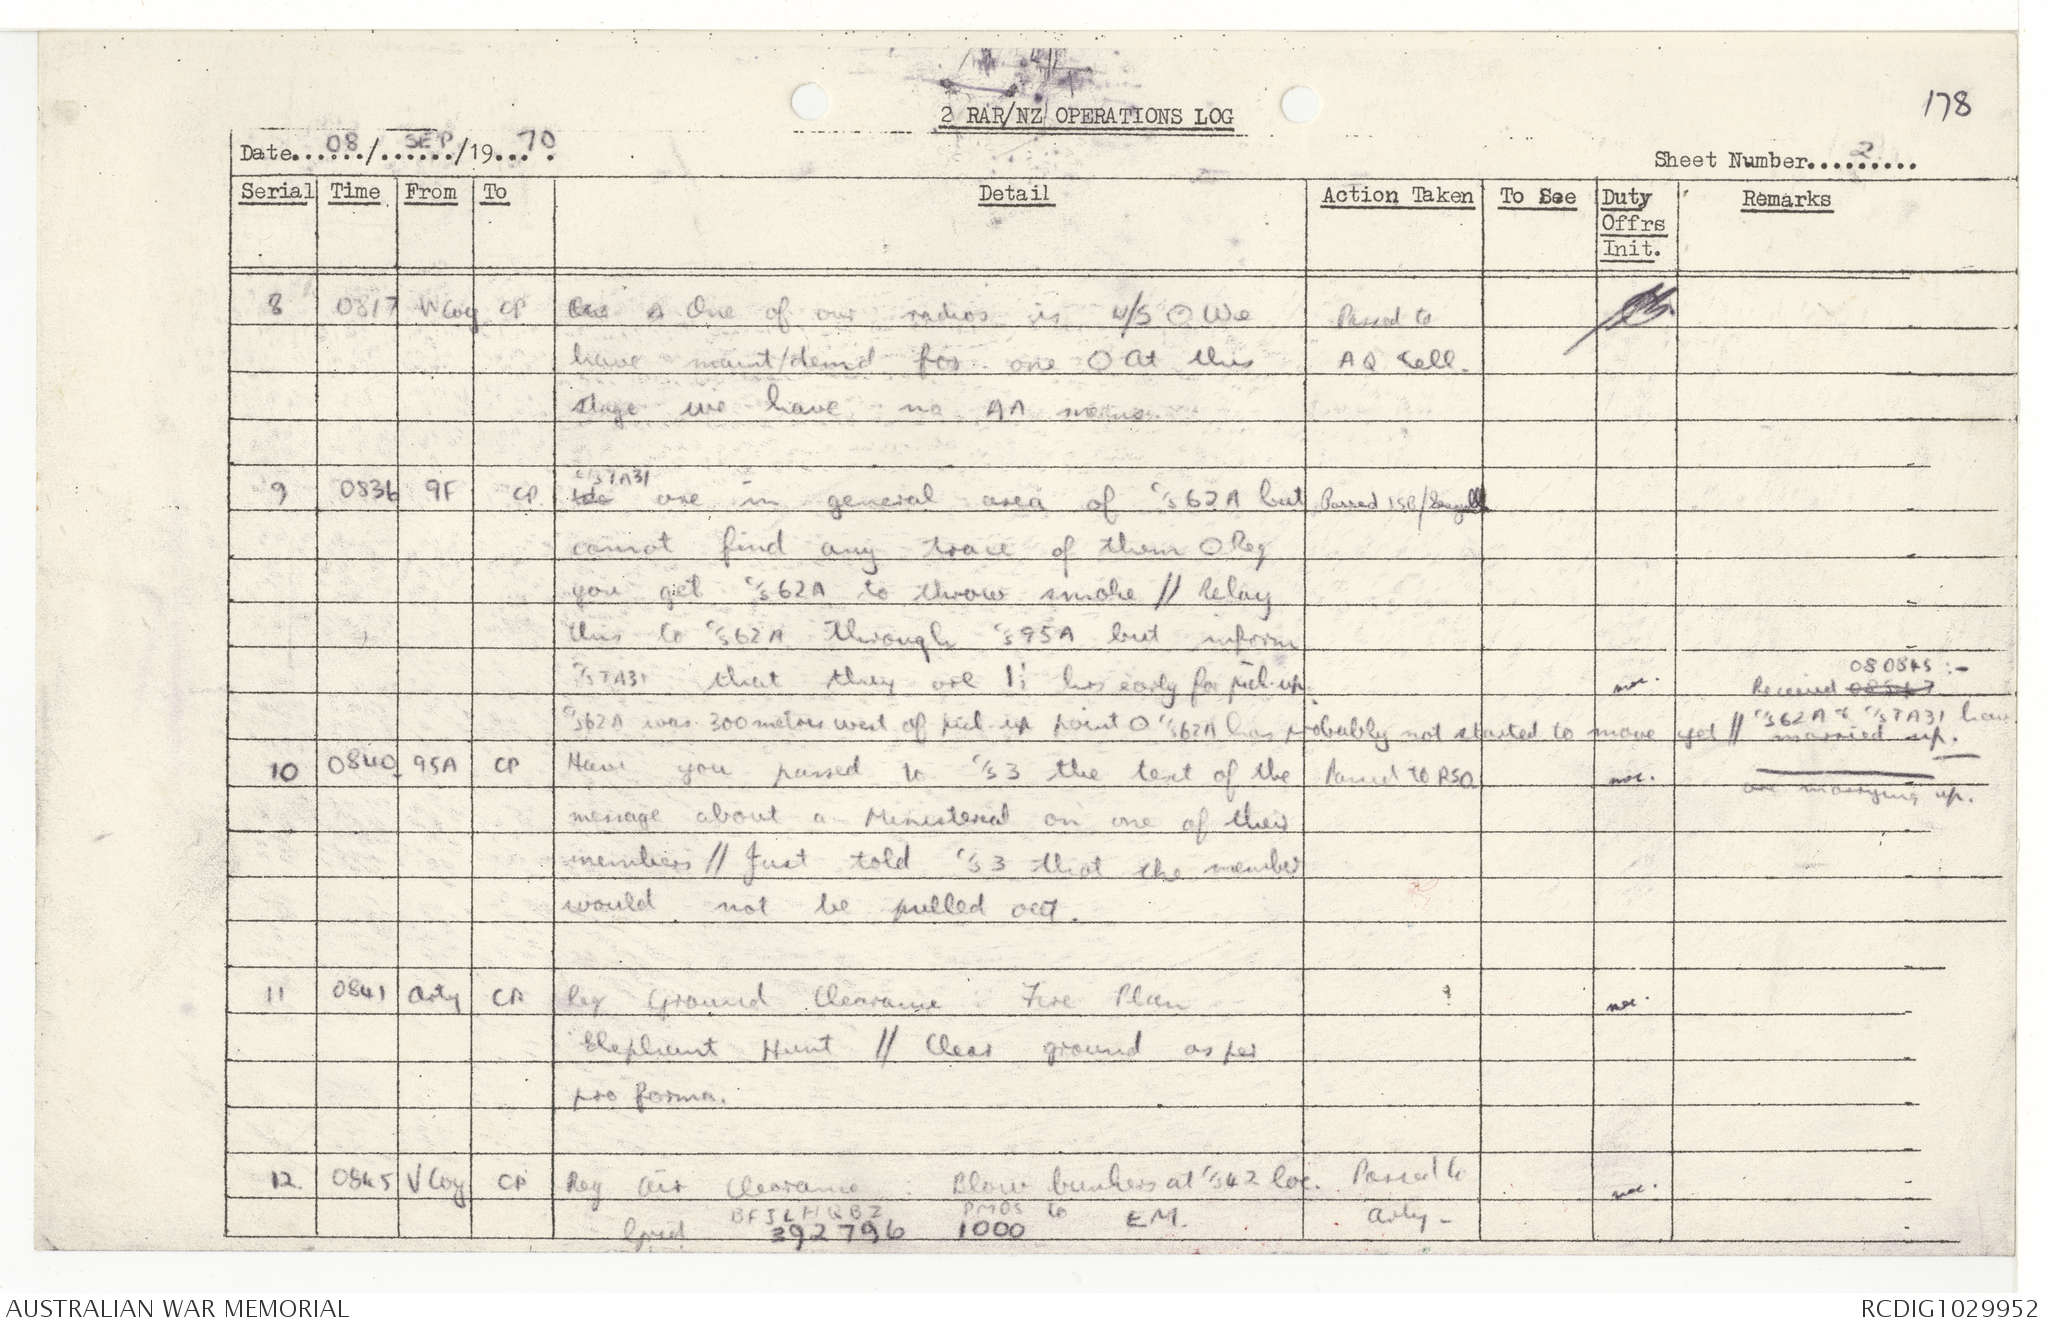 178
2 RAR/NZ OPERATIONS LOG
Date 08/SEP/1970
Sheet Number 2
Serial Time From To Detail Action Taken To See Duty Offrs Init. Remarks
8 0817 W Coy CP One of our radios is U/S O We Passed to
have maint/demd for one O At this A Q Cell.
stage we have no AA
C/S TA31
9 0836 9F CP are in general area of C/S 62A but Passed ISB/
cannot find any trace of them O Req
you get C/S 62A to throw smoke // Relay
this to C/S 62A through C/S 95A but inform
080845 :-
C/S TA31 that they are hrs early for pick-up. Received
C/S 62A was 300 metres west of pick up point O C/S 62A has probably not started to move yet // C/S 62A & C/S TA31 have
married up.
10 0840 95A CP Have you passed to C/S 3 the text of the Passed to RSO
are marrying up.
message about a Ministerial on one of their
members // Just told C/S 3 that the member
would not be pulled out.
11 0841 Arty CP Req Ground Clearance Fire Plan ?
Elephant Hunt // Clear ground as per
pro forma.
12. 0845 V Coy CP Req Air Clearance : Blow bunkers at C/S 42 loc. Passed to
Grid 392796 1000 to EM. Arty -
AUSTRALIAN WAR MEMORIAL
RCDIG1029952